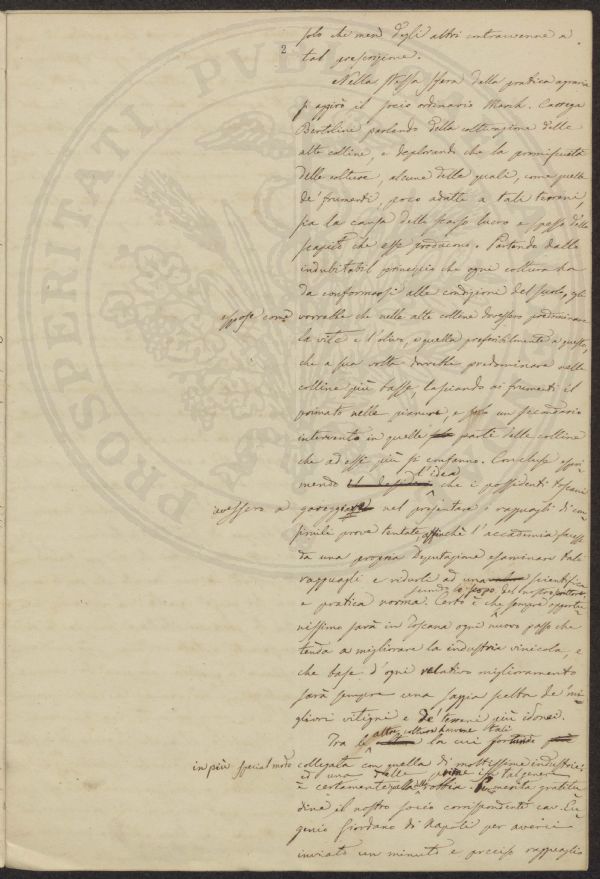 2
solo che menò degli altri contravvenne a
tal prescrizione.
Nella stessa sfera della pratica agraria
si aggirò il socio ordinario March. Carrega
Bertolini parlando della coltivazione delle
alte colline, e deplorando che la promiscuità
delle colture, alcune delle quali, come quella
de' frumenti, poco adatte a tali terreni,
sia la causa dello scarso lucro e spesso dello
scapito che esse producono. Partendo dallo
indubitabil principio che ogni coltura ha
da conformarsi alle condizioni del suolo, egli
espose come vorrebbe che nelle alte colline dovessero predominare
la vite e l'olivo, e quella preferibilmente a questo,
che a sua volta dovrebbe predominare nelle
colline più basse, lasciando ai frumenti il
primato nelle pianure, e solo un secondario
intervento in quelle parti delle colline
che ad essi più si confanno. Concluse espri
mendo il desider l'idea che i possidenti toscani
avessero a gareggiare nel presentare i ragguagli di con
simili prove tentate, affinchè l'accademia facesse
da una propria Deputazione esaminare tali
ragguagli e ridurli ad una scientifica
secondo lo scopo del nostro
e pratica norma. Certo è che sempre opportu
nissimo sarà in Toscana ogni nuovo passo che
tenda a migliorare la industria vinicola, e
che base d'ogni relativo miglioramento
sarà sempre una saggia scelta de' mi
gliori vitigni e de' terreni più idonei.
Tra le altre colture havvene tali
la cui
in più special modo collegata con quella di moltissime industrie;
ed una delle prime in tal genere
è certamente quella della robbia. Per merita gratitu
dine il nostro socio corrispondente cav. Eu
genio Giordano di Napoli per averci
inviato un minuto e preciso ragguaglio